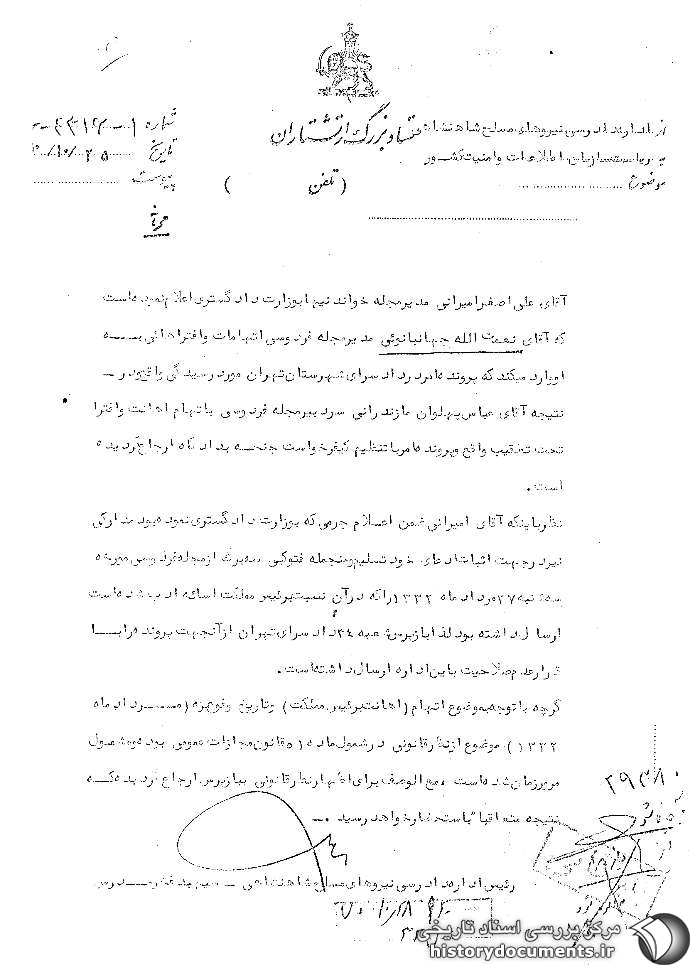 از اداره دادرسی نیروهای مسلح شاهنشاهی
ستاد بزرگ ارتشتاران
به ریاست سازمان اطلاعات و امنیت کشور
موضوع
(تلفن )
شماره
تاریخ
پیوست
آقای علی اصغر امیرانی مدیر مجله خواندنیها بوزارت دادگستری اعلام نموده است
که آقای نعمت الله جهانبانوئی مدیر مجله فردوسی اتهامات و افتراهائی به
او وارد میکند که پرونده امر در دادسرای شهرستان تهران مورد رسیدگی واقع و در
نتیجه آقای عباس پهلوان مازندرانی سردبیر مجله فردوسی باتهام اهانت وافترا
تحت تعقیب واقع و پرونده امر با تنظیم کیفرخواست جنحه بدادگاه ارجاع گردیده
است .
نظر باینکه آقای امیرانی ضمن اعلام جرمی که بوزارت دادگستری نموده بود مدارکی
نیز در جهت اثبات ادعای خود تسلیم و منجمله فتوکپی سه برگ از مجله فردوسی مورخه
سه شنبه ۲۷ مرداد ماه ۱۳۳۲ را که در آن نسبت برئیس مملکت اسائه ادب شده است
ارسال داشته بود لذا بازپرس شعبه ۲۴ دادسرای تهران از آنجهت پرونده را با
قرار عدم صلاحیت باین اداره ارسال داشته است .
گرچه با توجه بموضوع اتهام (اهانت برئیس مملکت) و تاریخ وقوع بزه (مرداد ماه
۱۳۳۲) موضوع از نظر قانونی در شمول ماده ۵۱ قانون مجازات عمومی بوده و مشمول
مرور زمان شده است ، مع الوصف برای اظهار نظر قانونی ببازپرس ارجاع گردیده که
نتیجه متعاقبا باستحضار خواهد رسید .
رئیس اداره دادرسی نیروهای مسلح شاهنشاهی - سپهبد
مرکز بررسی اسناد تاریخی
historydocuments.ir